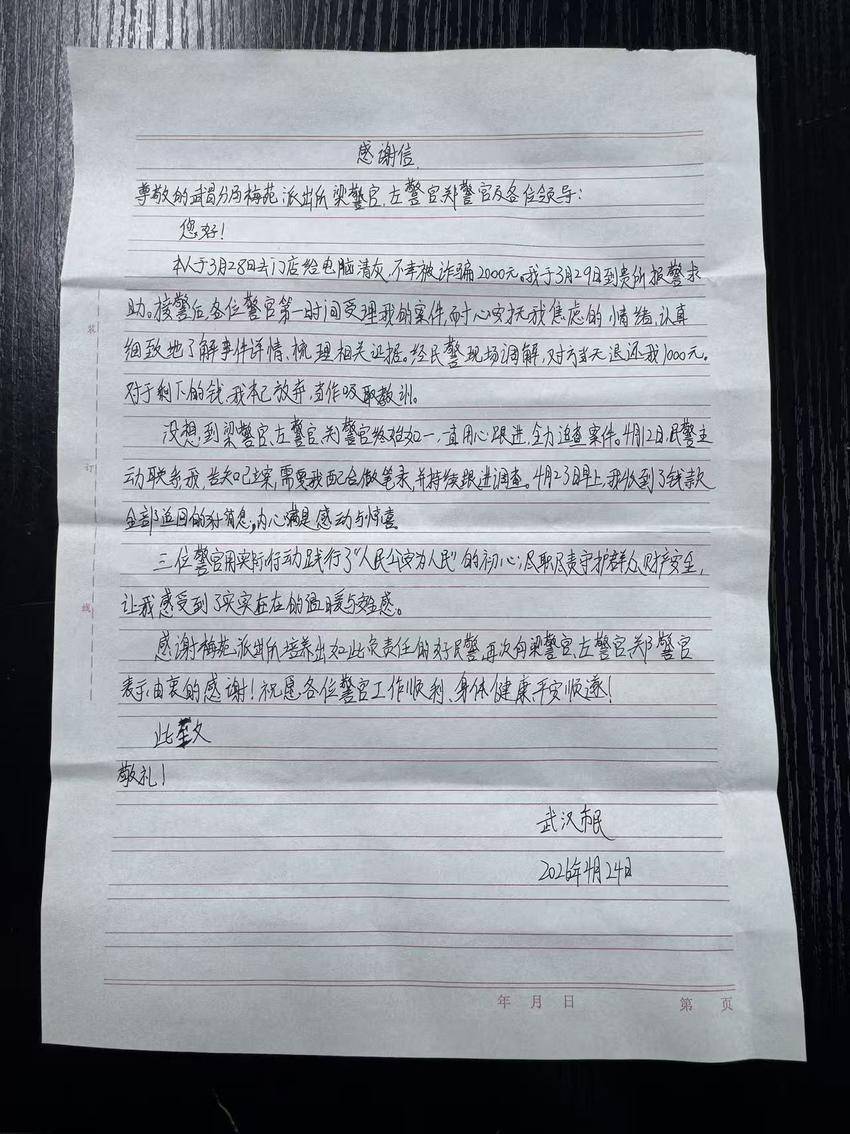 感谢信
尊敬的武昌分局梅苑派出所梁警官、左警官、郑警官及各位领导：
您好！
本人于3月28日去门店给电脑清灰，不幸被诈骗2000元。我于3月29日到贵所报警求
助。接警后，各位警官第一时间受理我的案件，耐心安抚我焦虑的情绪，认真
细致地了解事件详情、梳理相关证据。经民警现场调解，对方当天退还我1000元。
对于剩下的钱，我本已放弃，当作吸取教训。
没想到梁警官、左警官、郑警官始终如一，一直用心跟进，全力追查案件。4月12日，民警主
动联系我，告知已立案，需要我配合做笔录，并持续跟进调查。4月23日早上，我收到了钱款
全部追回的好消息，内心满是感动与惊喜。
三位警官用实际行动践行了“人民公安为人民”的初心，尽职尽责守护群众财产安全，
让我感受到了实实在在的温暖与安全感。
感谢梅苑派出所培养出如此负责任的好民警，再次向梁警官、左警官、郑警官
表示由衷的感谢！祝愿各位警官工作顺利、身体健康、平安顺遂！
此致
敬礼！
武汉市民
2026年4月24日
装
订
线
年 月 日 第 页